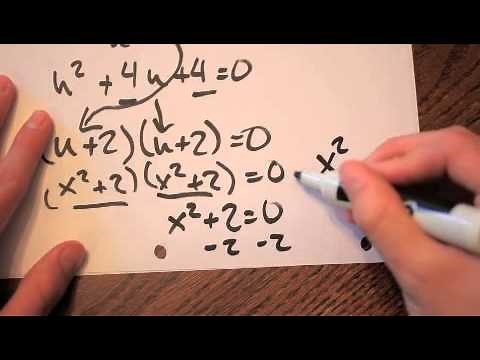 u² + 4u + 4 = 0
(u+2)(u+2) = 0
(x²+2)(x²+2) = 0
x²
x²+2=0
-2 -2